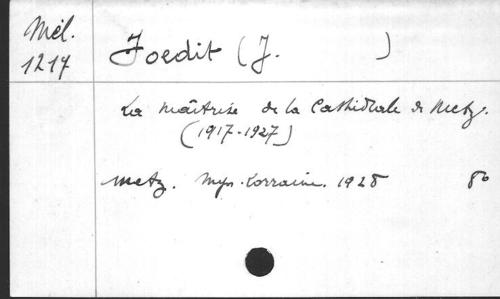 Mél.
1217
Joedit (J. )
La Maîtrise de la Cathédrale de Metz.
(1917-1927)
Metz. Imp. Lorraine. 1928 8°